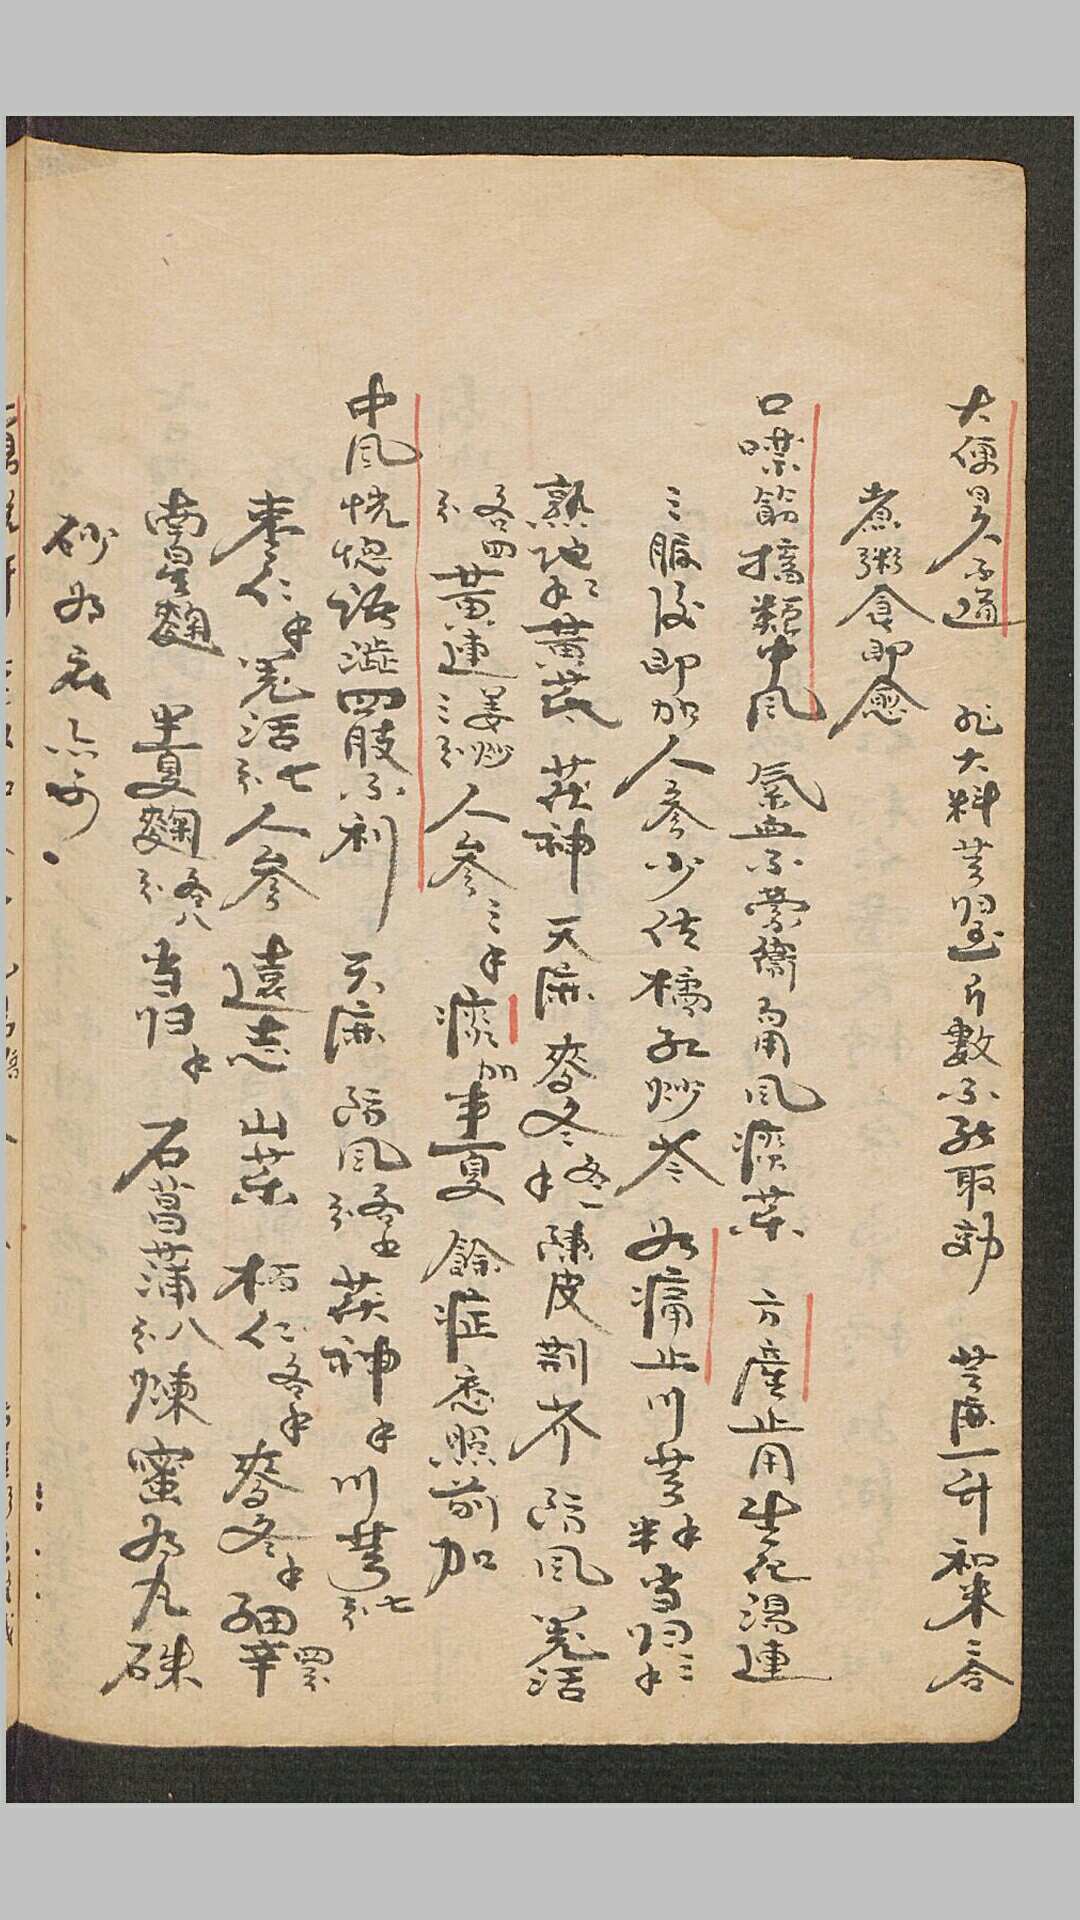 大便日久不通 非大料芎歸至斤數不能取効 芝麻一升和米二合
煮粥食即愈
口噤筋搐類中風 氣血不榮衛 角風痰藥 方產止用生化湯連
三服後即加人參少佐橘紅炒芩 如痛止川芎 當歸三
熟地二 黃芪 茯神 天麻 麥冬各一 陳皮 荊芥 防風 羌活
各四分 黃連姜炒三分 人參三 痰加半夏 餘症悉照前加
中風恍惚語澁四肢不利 天麻 防風各七分 茯神 川芎七分
棗仁 羌活七分 人參 遠志 山藥 柏仁各 麥冬 細辛四分
南星麯 半夏麯各八分 当归 石菖蒲八分 煉蜜為丸硃
砂為衣亦可